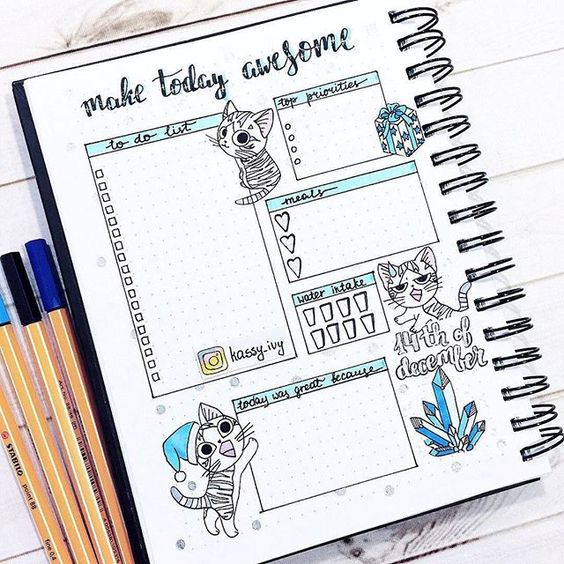 make today awesome
to do list
top priorities
meals
water intake
14th of
december
kassy-ivy
today was great because
STABILO
point 88
fine 0,4